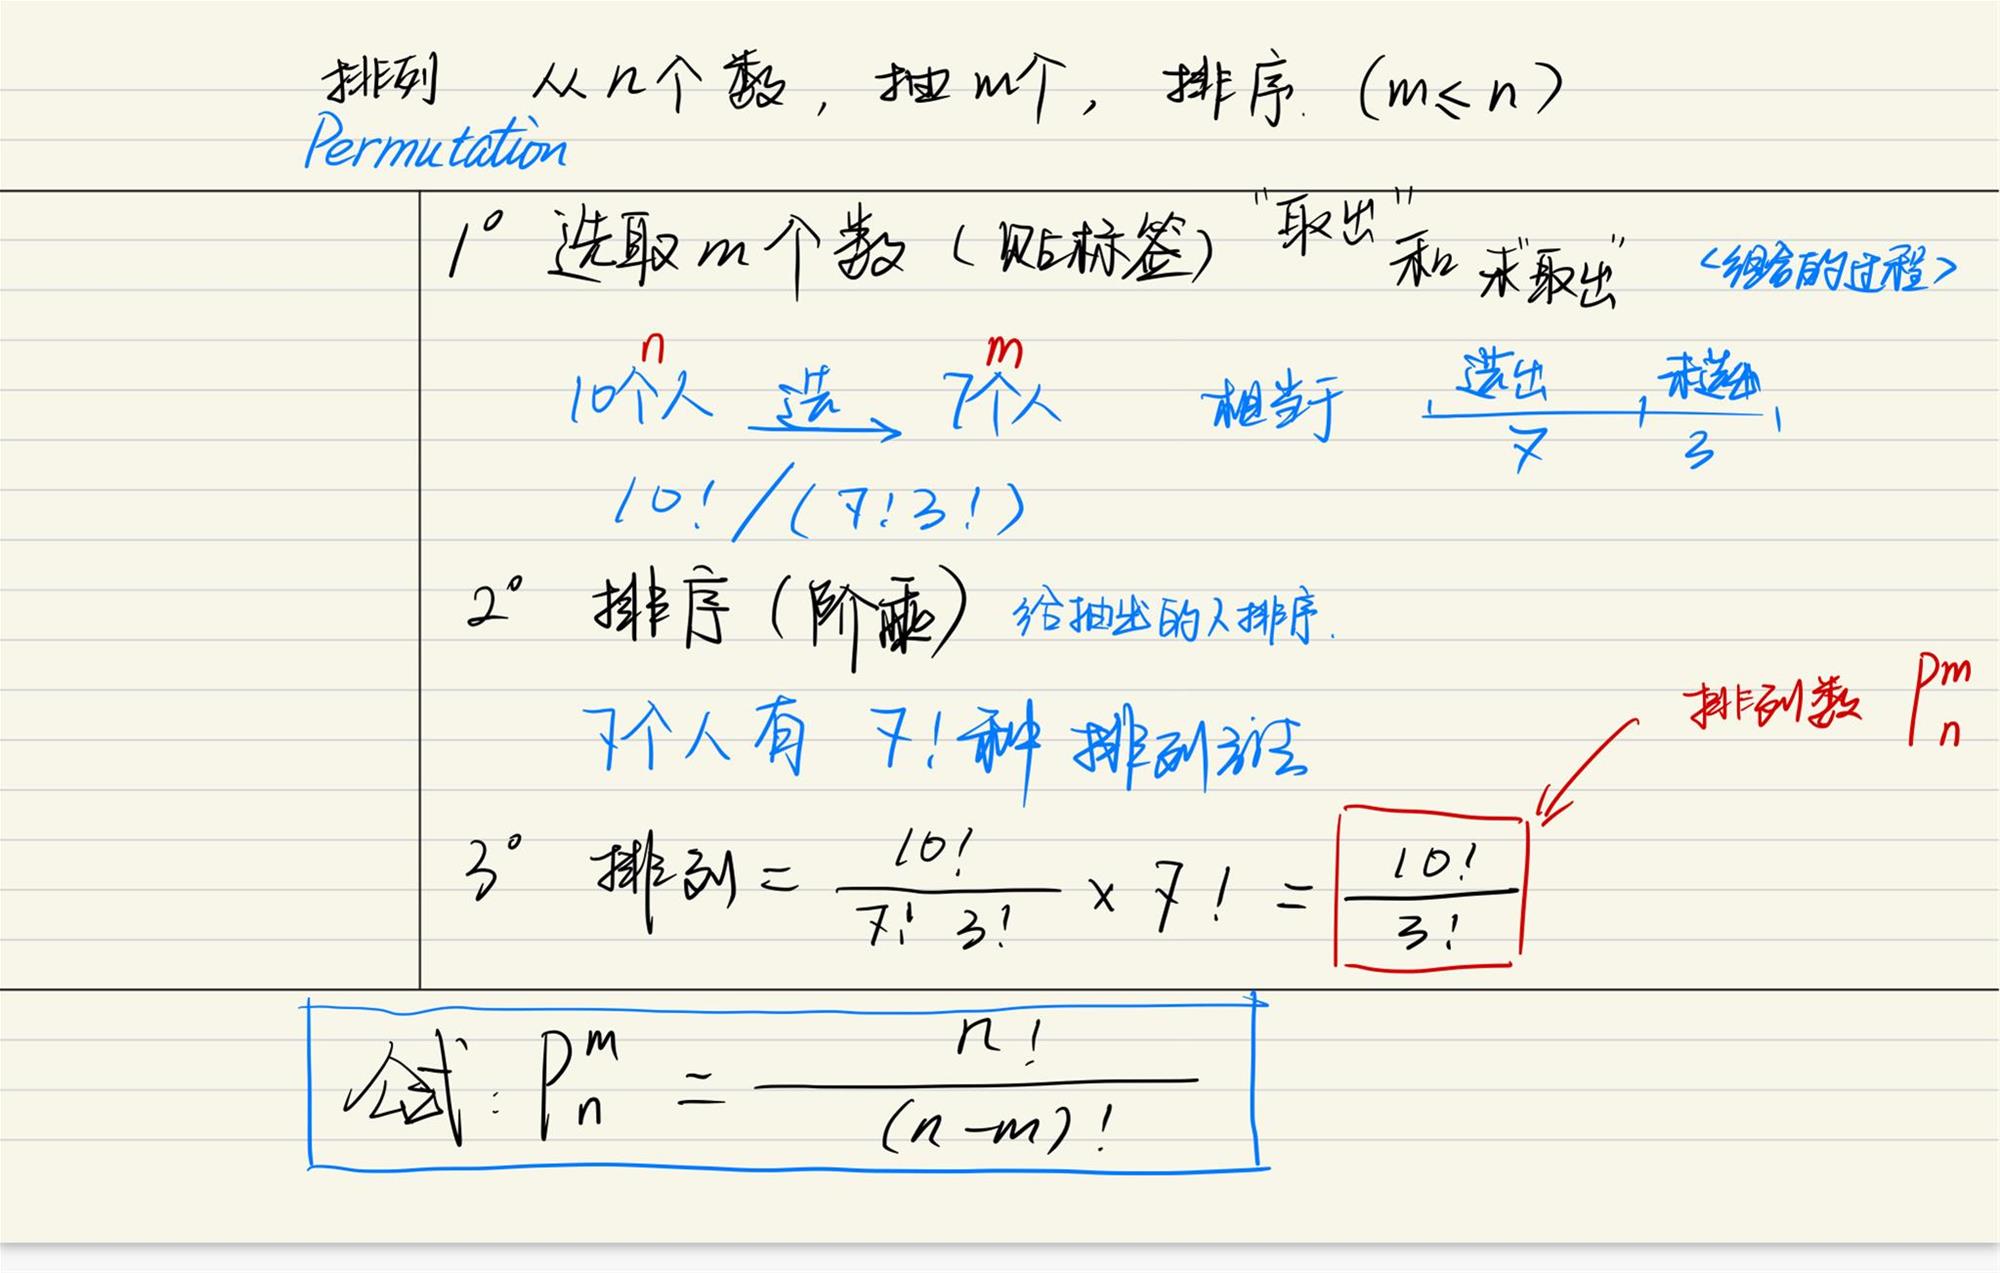 排列 从n个数,抽m个,排序.(m≤n)
Permutation
1° 选取m个数(贴标签)"取出"和"未取出" <组合的过程>
n m
10个人 选 7个人 相当于 选出 未选出
7 3
10!/(7!3!)
2° 排序(阶乘) 给抽出的人排序.
7个人有 7!种排列方法
排列数 P^m_n
3° 排列 = 10!/(7! 3!) × 7! = 10!/3!
公式: P^m_n = n!/(n-m)!